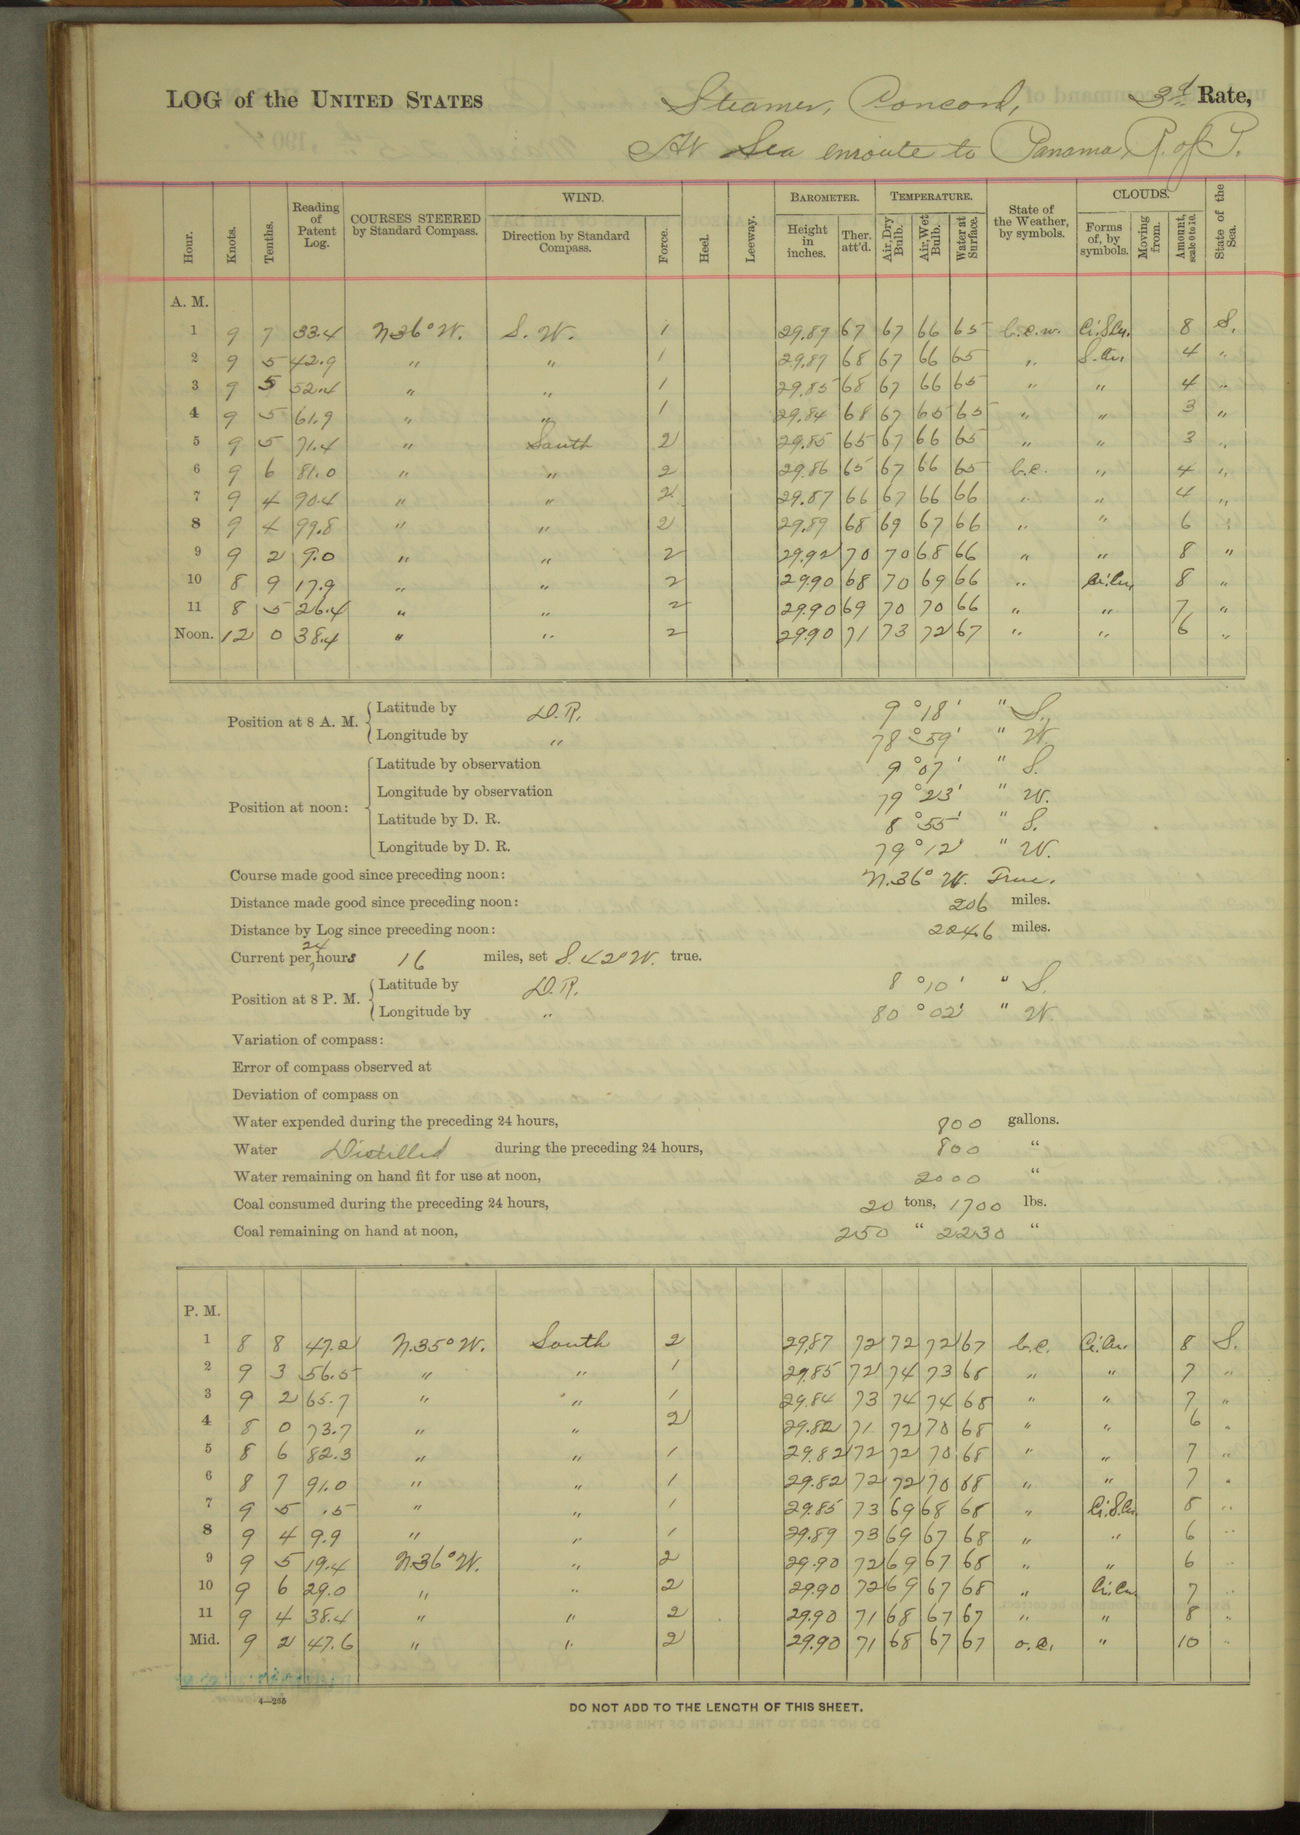 LOG of the UNITED STATES Steamer, Concord, 3d Rate,
At Sea enroute to Panama, R. of P.
Hour. Knots. Tenths. Reading of Patent Log. COURSES STEERED by Standard Compass. WIND. Direction by Standard Compass. Force. Heel. Leeway. BAROMETER. Height in inches. Ther. att'd. TEMPERATURE. Air, Dry Bulb. Air, Wet Bulb. Water at Surface. State of the Weather, by symbols. CLOUDS. Forms of, by symbols. Moving from. Amount, scale 0 to 10. State of the Sea.
A. M.
1 9 7 33.4 N36°W. S. W. 1 29.87 67 67 66 65 b.c.w. Ci.S.Cu. 8 S.
2 9 5 42.9 " " 1 29.87 68 67 66 65 " S.Cu. 4 "
3 9 5 52.4 " " 1 29.85 68 67 66 65 " " 4 "
4 9 5 61.9 " " 1 29.84 68 67 65 65 " " 3 "
5 9 5 71.4 " South 2 29.85 65 67 66 65 " " 3 "
6 9 6 81.0 " " 2 29.86 65 67 66 65 b.c. " 4 "
7 9 4 90.4 " " 2 29.87 66 67 66 66 " " 4 "
8 9 4 99.8 " " 2 29.89 68 69 67 66 " " 6 "
9 9 2 9.0 " " 2 29.92 70 70 68 66 " " 8 "
10 8 9 17.9 " " 2 29.90 68 70 69 66 " Ci.Cu. 8 "
11 8 5 26.4 " " 2 29.90 69 70 70 66 " " 7 "
Noon. 12 0 38.4 " " 2 29.90 71 73 72 67 " " 6 "
Position at 8 A. M. Latitude by D.R. 9 ° 18 ' " S.
Longitude by " 78 ° 59 ' " W.
Position at noon: Latitude by observation 9 ° 07 ' " S.
Longitude by observation 79 ° 23 ' " W.
Latitude by D. R. 8 ° 55 ' " S.
Longitude by D. R. 79 ° 12 ' " W.
Course made good since preceding noon: N.36° W. True.
Distance made good since preceding noon: 206 miles.
Distance by Log since preceding noon: 224.6 miles.
Current per 24 hours 16 miles, set S. 42° W. true.
Position at 8 P. M. Latitude by D.R. 8 ° 10 ' " S.
Longitude by " 80 ° 02 ' " W.
Variation of compass:
Error of compass observed at
Deviation of compass on
Water expended during the preceding 24 hours, 800 gallons.
Water Distilled during the preceding 24 hours, 800 "
Water remaining on hand fit for use at noon, 2000 "
Coal consumed during the preceding 24 hours, 20 tons, 1700 lbs.
Coal remaining on hand at noon, 250 " 2230 "
P. M.
1 8 8 47.2 N.35°W. South 2 29.87 72 72 72 67 b.c. Ci.Cu. 8 S.
2 9 3 56.5 " " 1 29.85 72 74 73 68 " " 7 "
3 9 2 65.7 " " 1 29.84 73 74 74 68 " " 7 "
4 8 0 73.7 " " 2 29.82 71 72 70 68 " " 6 "
5 8 6 82.3 " " 1 29.82 72 72 70 68 " " 7 "
6 8 7 91.0 " " 1 29.82 72 72 70 68 " " 7 "
7 9 5 .5 " " 1 29.85 73 69 68 68 " Ci.S.Cu. 8 "
8 9 4 9.9 " " 1 29.89 73 69 67 68 " " 6 "
9 9 5 19.4 N.36°W. " 2 29.90 72 69 67 68 " " 6 "
10 9 6 29.0 " " 2 29.90 72 69 67 68 " Ci.Cu. 7 "
11 9 4 38.4 " " 2 29.90 71 68 67 67 " " 8 "
Mid. 9 2 47.6 " " 2 29.90 71 68 67 67 o.c. " 10 "
4—265
DO NOT ADD TO THE LENGTH OF THIS SHEET.